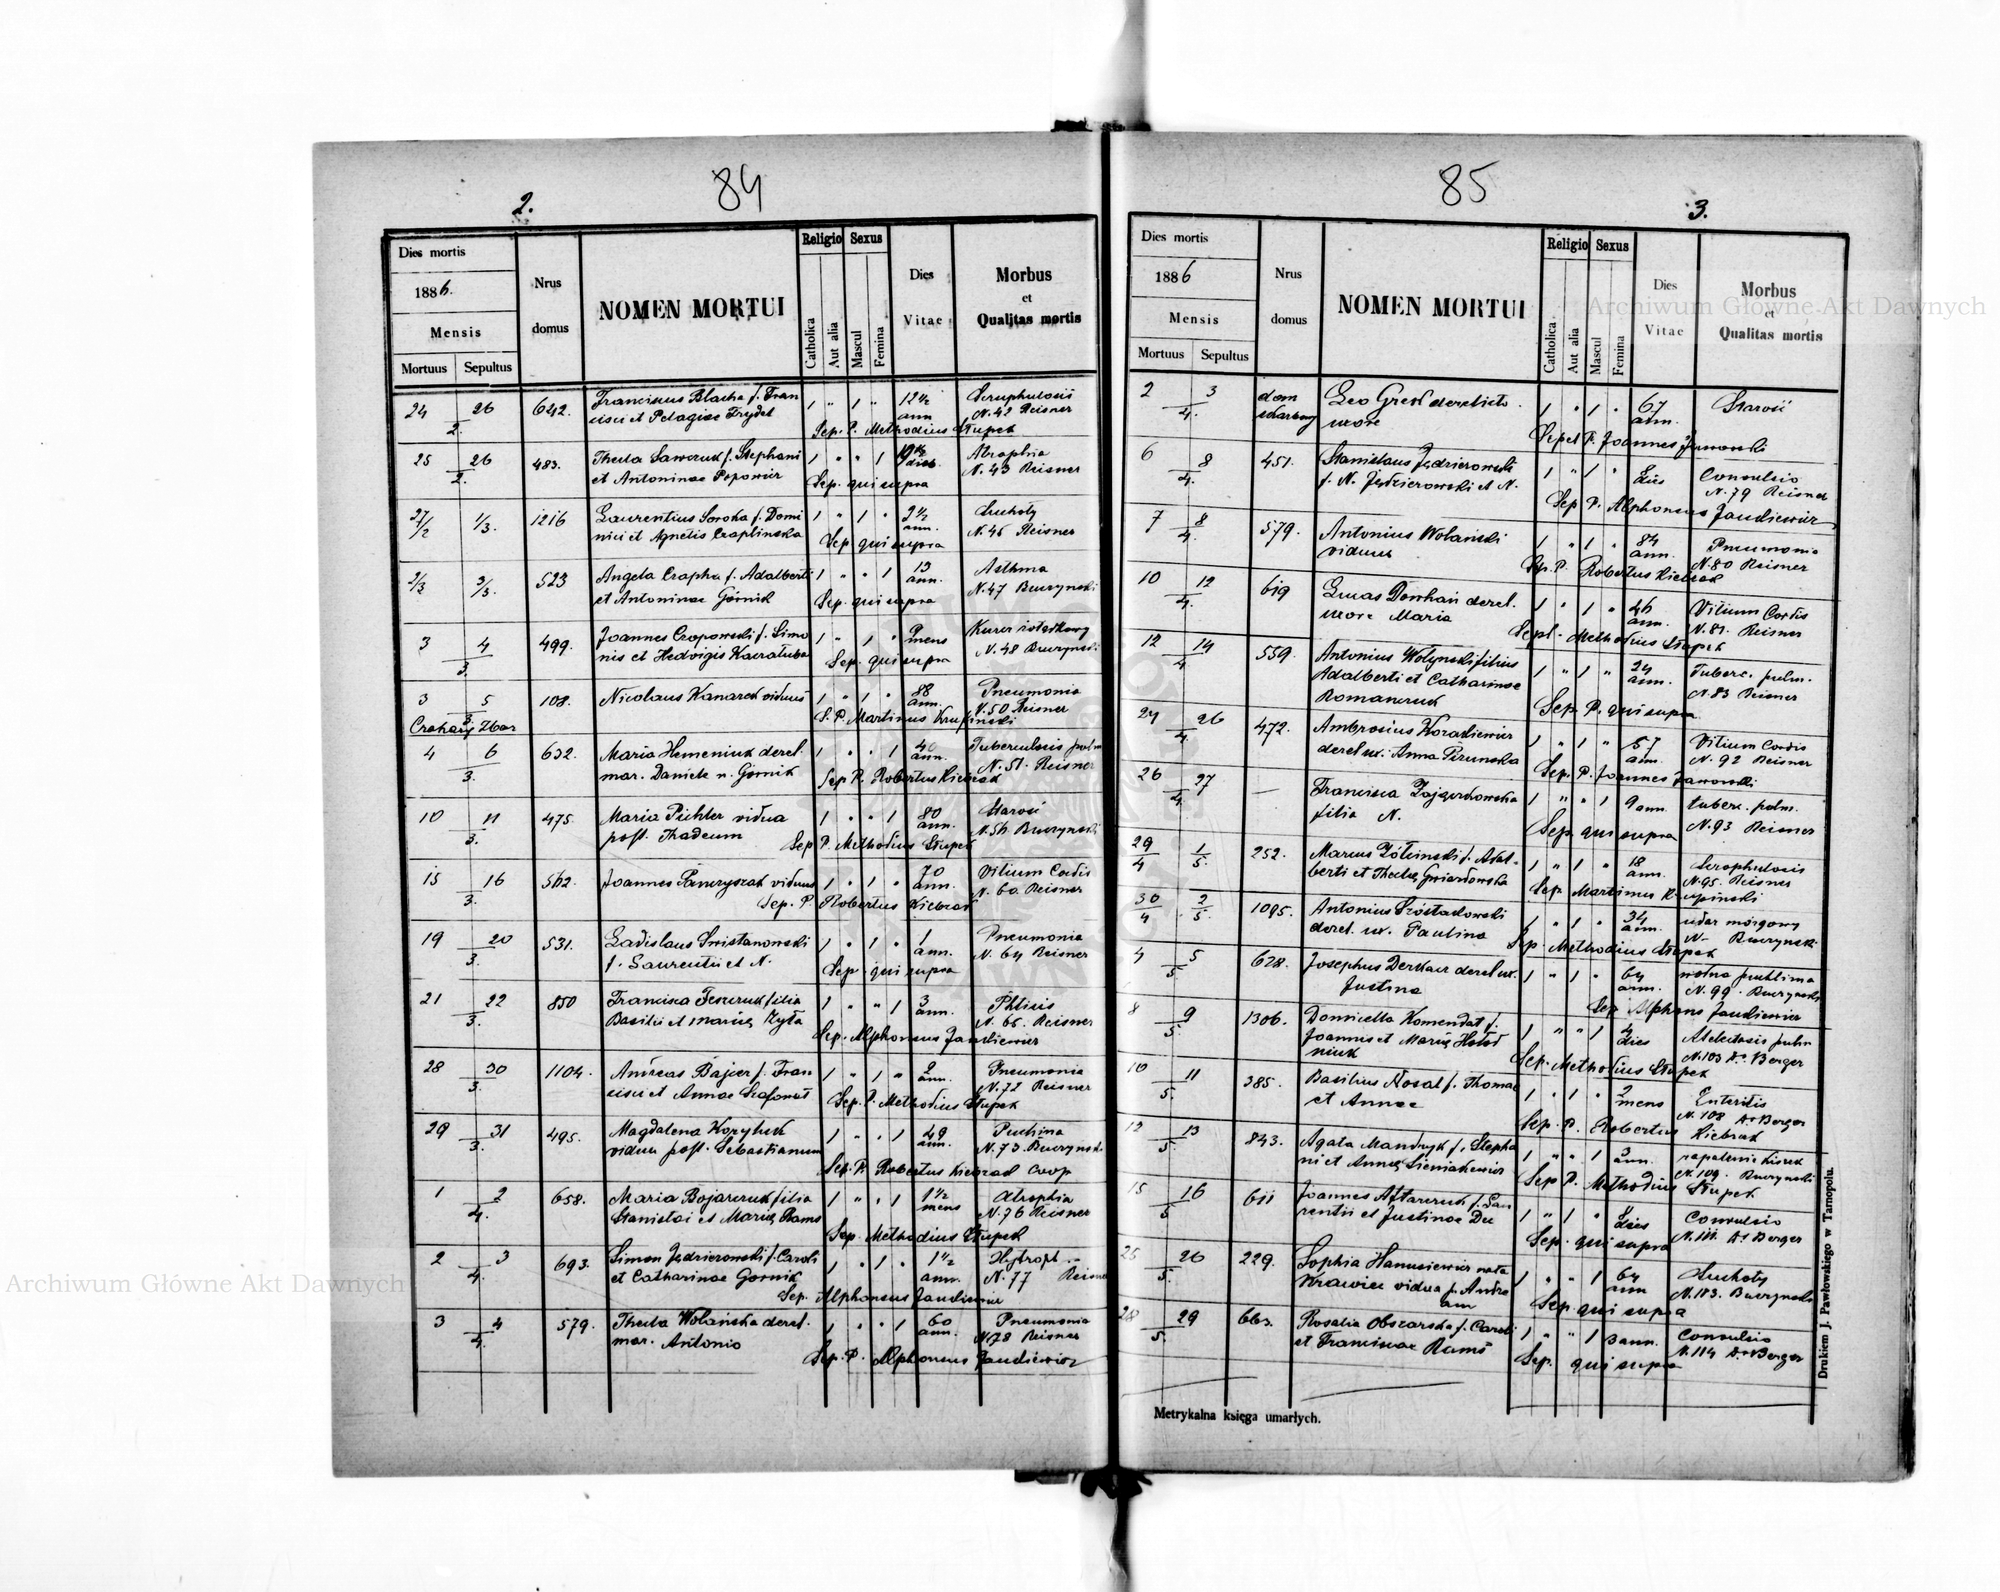 84
2.
Dies mortis
1886.
Mensis
Mortuus Sepultus
Nrus domus
NOMEN MORTUI
Religio
Catholica
Aut alia
Sexus
Mascul
Femina
Dies Vitae
Morbus
et
Qualitas mortis
24 26 642. Franciscus Blacha f. Fran 1 " 1 " 12½ Scruphulosis
2. cisci et Pelagiae Frydel ann N. 42 Reisner
Sep. P. Methodius Słupek
25 26 483. Thecla Sawczuk f. Stephani 1 " " 1 Atrophia
2. et Antoninae Popowicz dieb. N. 43 Reisner
Sep. qui supra
27/2 1/3. 1216 Laurentius Soroka f. Domi 1 " 1 " 2½ Suchoty
nici et Agnetis Czaplinska ann. N. 46 Reisner
Sep. qui supra
2/3 3/3. 523 Angela Czapka f. Adalberti 1 " " 1 13 Asthma
et Antoninae Górnik ann. N. 47 Burzynski
Sep. qui supra
3 4 499. Joannes Czopowski f. Simo 1 " 1 " 2 Kurcz żołądkowy
3. nis et Hedvigis Kaczałuba mens N. 48 Burzynski
Sep. qui supra
3 5 108. Nicolaus Kanarek viduus 1 " 1 " 88 Pneumonia
3. ann. N. 50 Reisner
Czahary Zbar S. P. Martinus Krupinski
4 6 632. Maria Hemeniuk derel. 1 " " 1 40 Tuberculosis pulm
3. mar. Daniele n. Górnik ann. N. 51. Reisner
Sep. P. Robertus Kiebzak
10 11 475. Maria Pichler vidua 1 " " 1 80 Starość
3. post. Thadeum ann. N. 54 Burzynski
Sep P. Methodius Słupek
15 16 562. Joannes Panczyszak viduus 1 " 1 " 70 Vitium Cordis
3. ann. N. 60. Reisner
Sep. P. Robertus Kiebzak
19 20 531. Ladislaus Swistanowski 1 " 1 " 1 Pneumonia
3. f. Laurentii et N. ann. N. 64 Reisner
Sep. qui supra
21 22 850 Francisca Feszczuk filia 1 " " 1 3 Phtisis
3. Basilii et Mariae Zyła ann. N. 66. Reisner
Sep. Alphonsus Jandiewicz
28 30 1104. Andreas Bajier f. Fran 1 " 1 " 2 Pneumonia
3. cisci et Annae ann. N. 72 Reisner
Sep. P. Methodius Słupek
29 31 495. Magdalena 1 " " 1 49 Puchina
3. vidua post. Sebastianum ann. N. 73. Burzynski
Sep. P. Robertus Kiebzak Coop
1 2 658. Maria Bojarczuk filia 1 " " 1 1½ Atrophia
4. Stanislai et Mariae Rams mens N. 76 Reisner
Sep. Methodius Słupek
2 3 693. Simon Jędzierowski f. Caroli 1 " 1 " 1½
4. et Catharinae Gornik ann. N. 77 Reisner
Sep. Alphonsus Jandiewicz
3 4 579. Thecla Wolańska derel. 1 " " 1 60 Pneumonia
4. mar. Antonio ann. N. 78 Reisner
Sep. P. Alphonsus Jandiewicz
85
3.
Dies mortis
1886
Mensis
Mortuus Sepultus
Nrus domus
NOMEN MORTUI
Religio
Catholica
Aut alia
Sexus
Mascul
Femina
Dies Vitae
Morbus
et
Qualitas mortis
2 3 dom Leo derelicto 1 " 1 " 67 Starość
4. uxore ann.
Sepel P. Joannes Jaworski
6 8 451. Stanislaus Jędzierowski 1 " 1 " dies Convulsio
4. f. N. Jędzierowski et N. N. 79 Reisner
Sep P. Alphonsus Jandiewicz
7 8 579. Antonius Wolański 1 " 1 " 84 Pneumonia
4. viduus ann. N. 80 Reisner
Sep. P. Robertus Kiebzak
10 12 619 Lucas Dowhań derel. 1 " 1 " 46 Vitium Cordis
4. uxore Maria ann. N. 81. Reisner
Sepl. Methodius Słupek
12 14 559. Antonius Wolynski filius 1 " 1 " 24 Tuberc. pulm.
4. Adalberti et Catharinae ann. N. 83 Reisner
Romanczuk
Sep. P. qui supra
24 26 472. Ambrosius Korackiewicz 1 " 1 " 57 Vitium Cordis
4. derel ux. Anna Pirunska ann. N. 92 Reisner
Sep. P. Joannes Jaworski
26 27 — Francisca Zajączkowska 1 " " 1 9 ann. tuberc. pulm.
4. filia N. N. 93 Reisner
Sep. qui supra
29/4 1/5. 252. Marcus Żółcinski f. Adal- 1 " 1 " 18 Scrophulosis
berti et Theclae Gwiazdowska ann. N. 95. Reisner
Sep. Martinus Krupinski
30/4 2/5. 1095. Antonius Szóstakowski 1 " 1 " 34 udar mózgowy
derel. ux. Paulina ann. N– Burzynski
Sep. Methodius Słupek
4 5 628. Josephus Derkacz derel ux. 1 " 1 " 64 wodna puchlina
5. Justina ann. N. 99. Burzynski
Sep. Alphons Jandiewicz
8 9 1306. Domicella Komendat f. 1 " " 1 4 Atelectasis pulm
5. Joannis et Mariae Hołod dies N. 103 Dr. Berger
niuk
Sep. Methodius Słupek
10 11 385. Basilius Nosal f. Thomae 1 " 1 " 2 Enteritis
5. et Annae mens N. 108 Dr Berger
Sep. P. Robertus Kiebzak
12 13 843. Agata Mandryk f. Stepha 1 " " 1 3 zapalenie kiszek
5. ni et Annae Sieniakewicz ann. N. 109. Burzynski
Sep P. Methodius Słupek
15 16 611 Joannes Aftarczuk f. Lau 1 " 1 " dies Convulsio
5 rentii et Justinae Du N. 111. Dr Berger
Sep. qui supra
25 26 229. Sophia Hanusiewicz nata 1 " " 1 64 Suchoty
5. Krawiec vidua p. Andre ann N. 113. Burzynski
am
Sep. qui supra
28 29 663. Rosalia Obszarska f. Caroli 1 " " 1 3 ann. Convulsio
5. et Franciscae Rams N. 114 Dr Berger
Sep. qui supra
Metrykalna księga umarłych.
Drukiem J. Pawłowskiego w Tarnopolu.
Archiwum Główne Akt Dawnych
Archiwum Główne Akt Dawnych